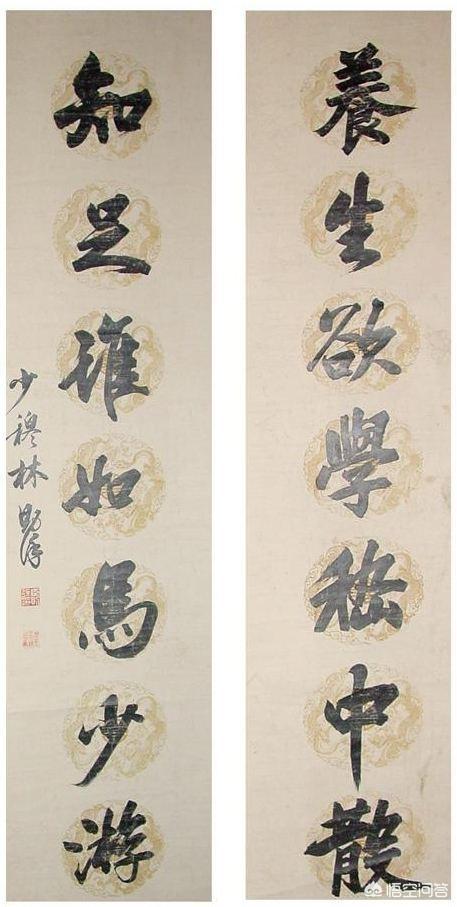 養生欲學嵇中散
知足誰如馬少游
少穆林則徐
悟空问答